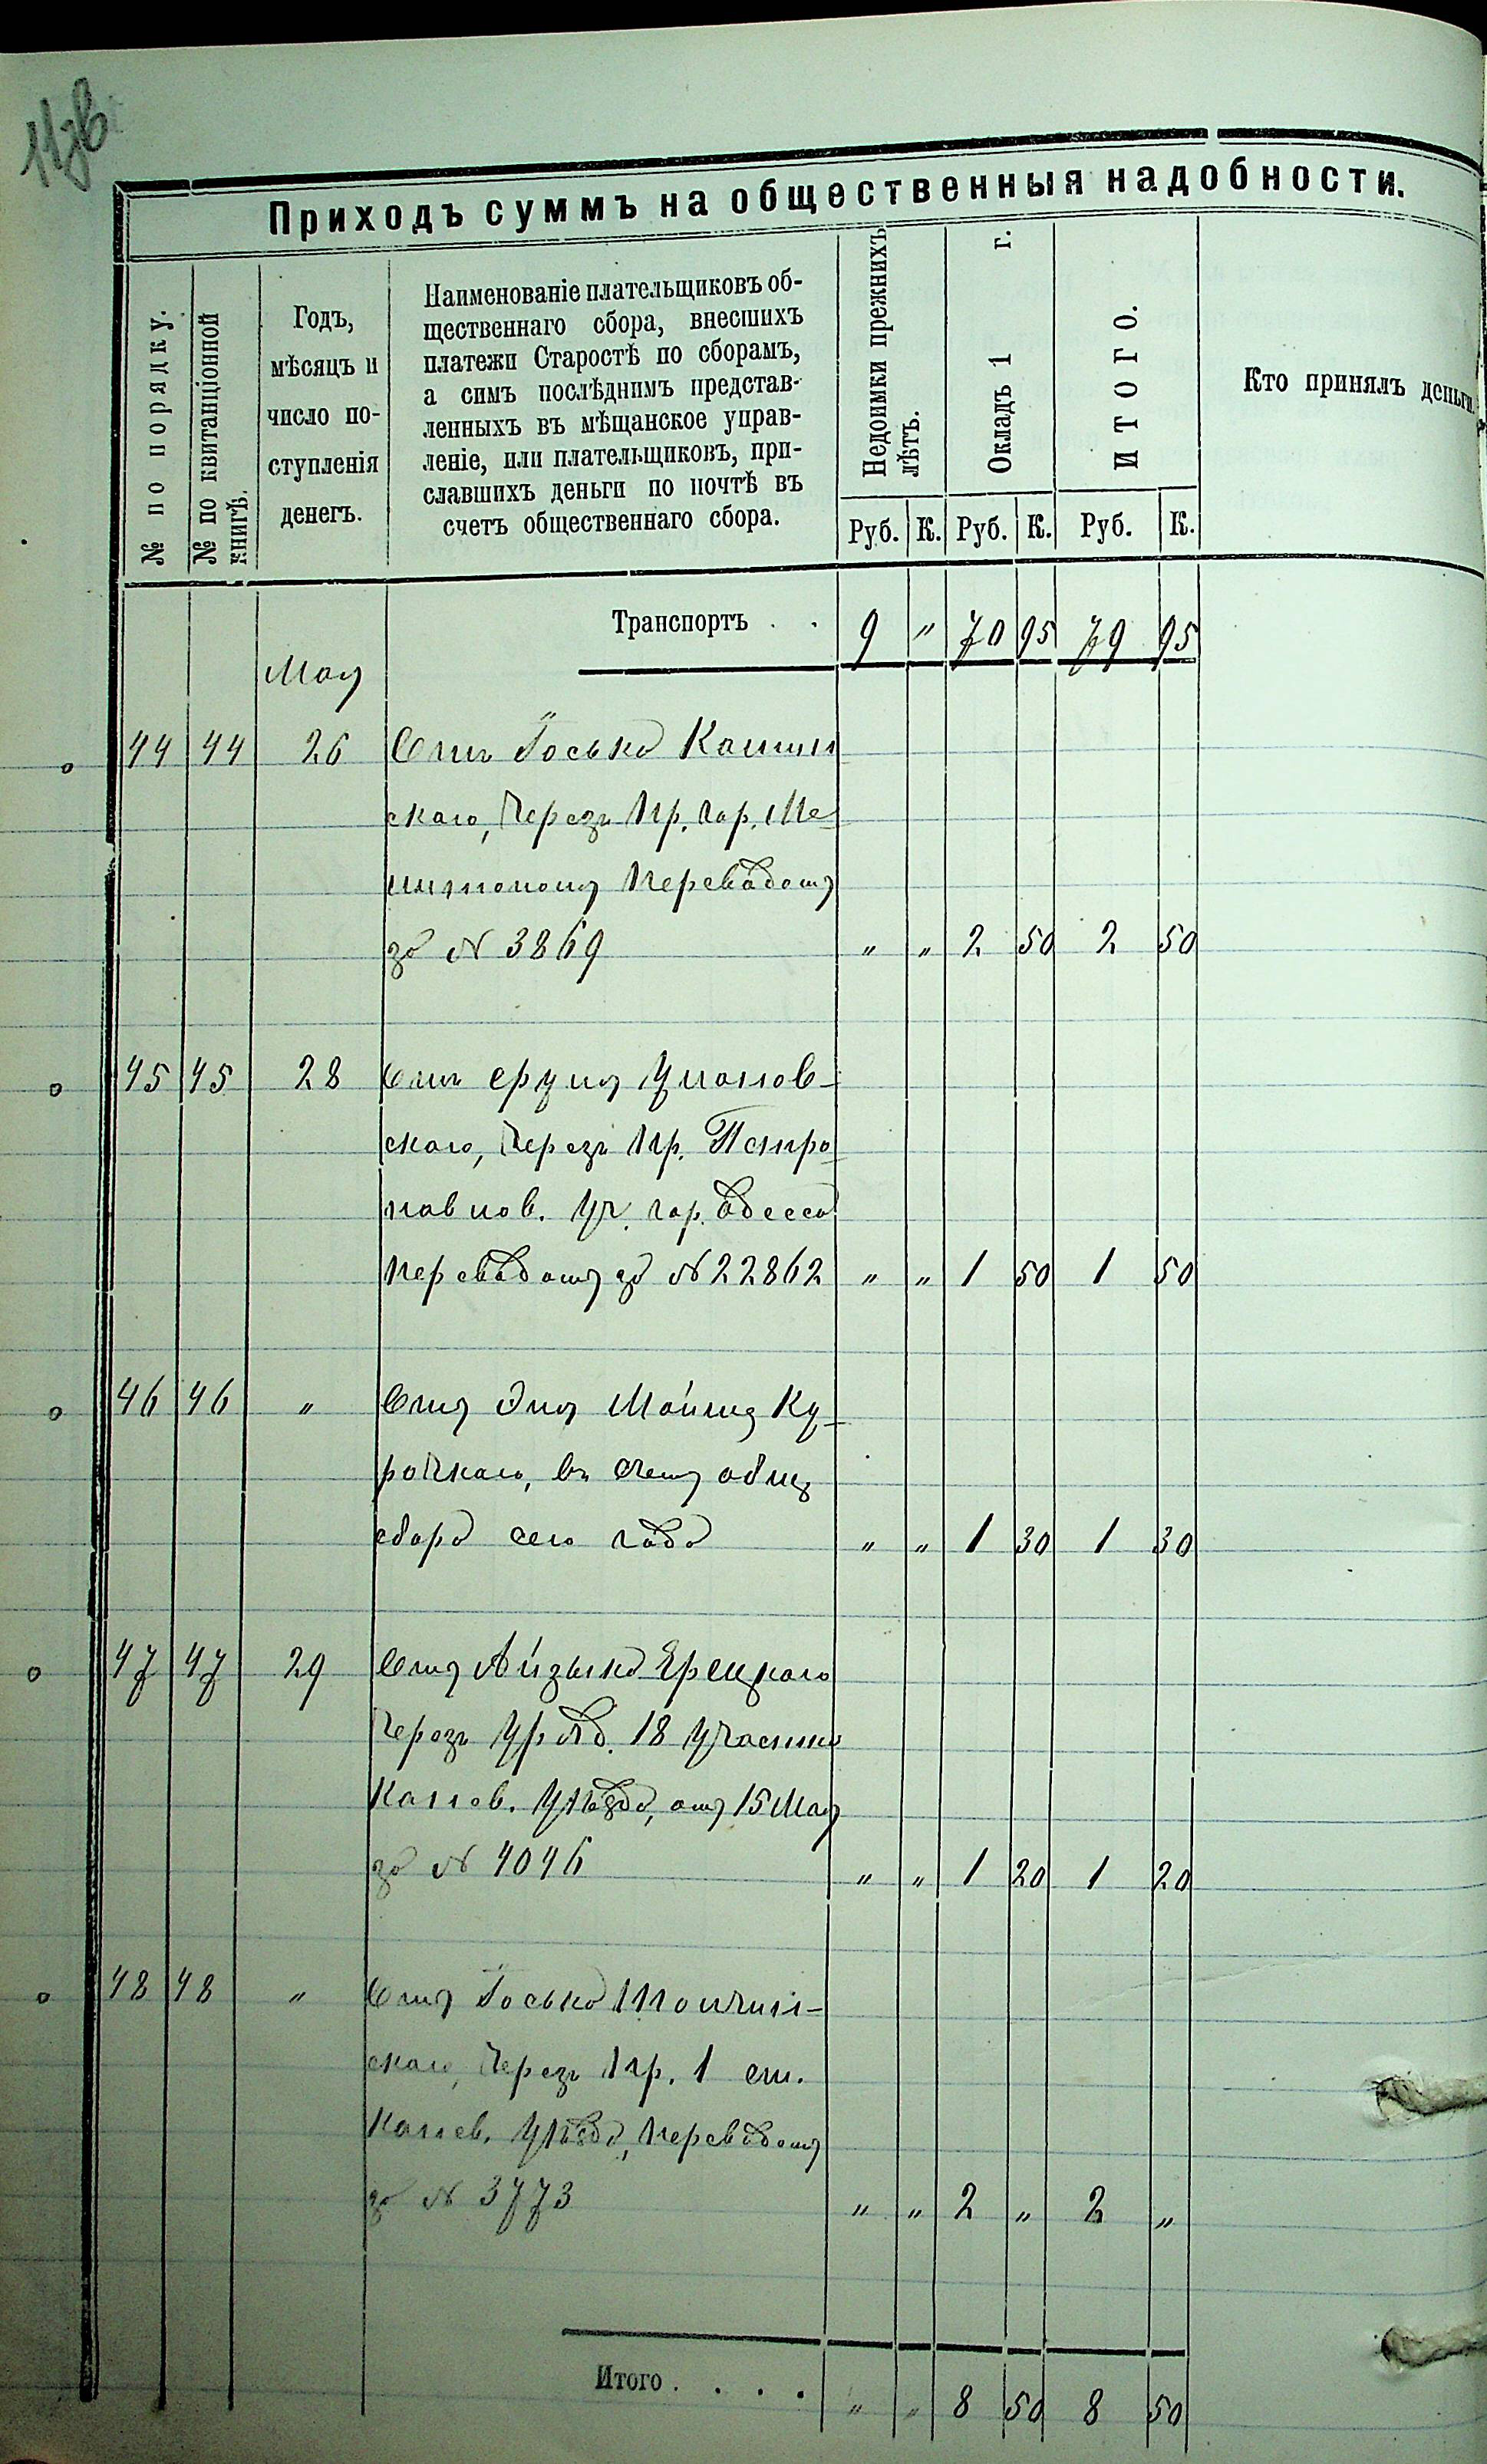 11зв
Приходъ суммъ на общественныя надобности.
№ по порядку.
№ по квитанціонной
книгѣ.
Годъ,
мѣсяцъ и
число по-
ступленія
денегъ.
Наименованіе плательщиковъ об-
щественнаго сбора, внесшихъ
платежи Старостѣ по сборамъ,
а симъ послѣднимъ представ-
ленныхъ въ мѣщанское управ-
леніе, или плательщиковъ, при-
славшихъ деньги по почтѣ въ
счетъ общественнаго сбора.
Недоимки прежнихъ
лѣтъ.
Окладъ 1 г.
ИТОГО.
Кто принялъ деньги.
Руб. К. Руб. К. Руб. К.
Транспортъ . . 9 " 70 95 79 95
Мая
44 44 26 Отъ Іоська
скаго, Черезъ Пр. гор.
Переводомъ
за № 3869 " " 2 50 2 50
45 45 28 Отъ
скаго, Черезъ Пр. Петро
павлов. Уч. гор. Одесса
Переводомъ за № 22862 " " 1 50 1 50
46 46 " Отъ Эля Мойше Ку-
рочкаго, въ Счетъ общ
сбора сего года " " 1 30 1 30
47 47 29 Отъ Айзыка Ерецкаго
Черезъ Уряд. 18 Участка
Канев. Уѣзда, отъ 15 Мая
за № 4046 " " 1 20 1 20
48 48 " Отъ Іоська
скаго, Черезъ Пр. 1 ст.
Канев. Уѣзда, Переводомъ
за № 3773 " " 2 " 2 "
Итого . . . . " " 8 50 8 50